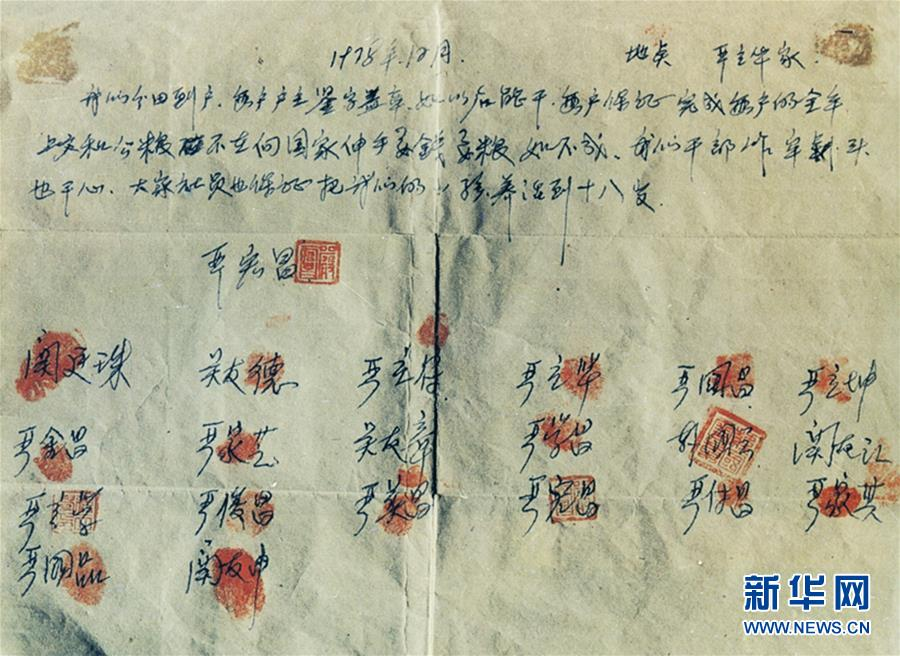 1978年12月. 地点 严立华家.
我们分田到户. 每户户主鉴字盖章. 如以后能干. 每户保证完成每户的全年
上交和公粮 不在向国家伸手要钱要粮 如不成. 我们干部作牢刹头
也干心. 大家社员也保证把我们的小孩养活到十八岁.
严宏昌
関廷珠 关友德 严立符 严立华 严国昌 严立坤
严金昌 严家芝 关友章 严学昌 韩国云 関友江
严立学 严俊昌 严美昌 严宏昌 严付昌 严家其
严国品 関友申
新华网
WWW.NEWS.CN